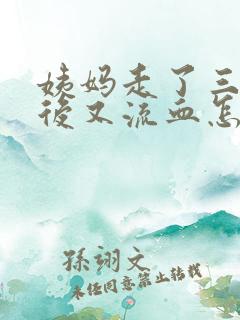 姨妈走了三
後又流血怎
孫翊文
未经同意禁止转载